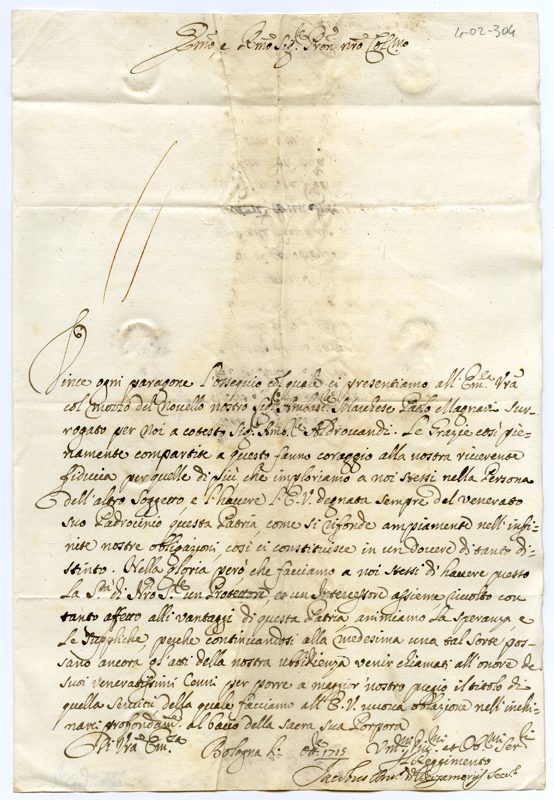 6-02-304
Em̃o, e Rmõ Sig.r Pron̄ nr̃o Col̃mo
Vince ogni paragone l'ossequio col quale ci presentiamo all' Em.za Vrã
col mezzo del Novello nostro Sig.r Ambas.re Marchese Paolo Magnani Sur-
rogato per Noi a cotesto Sig. Amb.re Aldrovandi. Le Grazie così pie-
namente compartite a questo fanno coraggio alla nostra riverente
fiducia per quelle di più che imploriamo a noi stessi nella Persona
dell'altro Soggetto, e l'havere l'E.V. degnata sempre del venerato
suo Padrocinio questa Patria come si rifonde ampiamente nell'infi-
nite nostre obligazioni, così ci constituisce in un Dovere di tanto di-
stinto. Nella gloria però che facciamo a noi stessi di havere presso
la S.tà di Nrõ S.re un Protettore, et un Intercessore assieme rivolto con
tanto affetto alli vantaggi di questa Patria animiamo la speranza e
le suppliche, perche continuandosi alla medesima una tal sorte pos-
sano ancora gl'atti della nostra ubbidienza venir chiamati all'onore de
suoi veneratissimi Cenni per porre a maggior nostro pregio il titolo di
quella Servitù della quale facciamo all'E.V. nuova oblazione nell'inchi-
narci profondam.te al bacio della Sacra sua Porpora
Di Vrã Em.za Bologna li Ott.re 1715 Um.mi Div.mi et Obl.mi Ser.ri
Il Reggimento
Jacobus Ant.s Secr.s